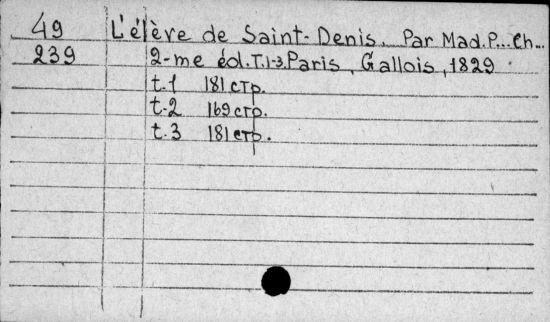 49 L'élève de Saint-Denis. Par Mad. P... Ch...
239 2-me éd. T.1-3. Paris, Gallois, 1829
t.1 181 стр.
t.2 169 стр.
t.3 181 стр.